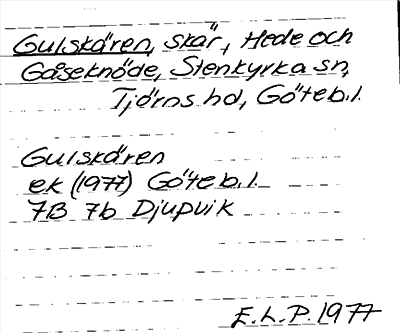 Gulskären, skär, Hede och
Gåseknöde, Stenkyrka sn,
Tjörns hd, Göteb.l.
Gulskären
ek (1977) Göteb.l.
7B 7b Djupvik
E.L.P. 1977